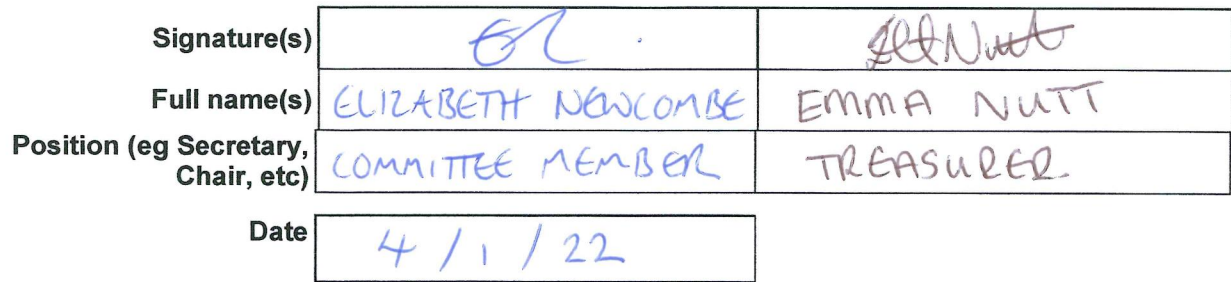 Signature(s)
Full name(s) ELIZABETH NEWCOMBE EMMA NUTT
Position (eg Secretary, COMMITTEE MEMBER TREASURER
Chair, etc)
Date 4 / 1 / 22